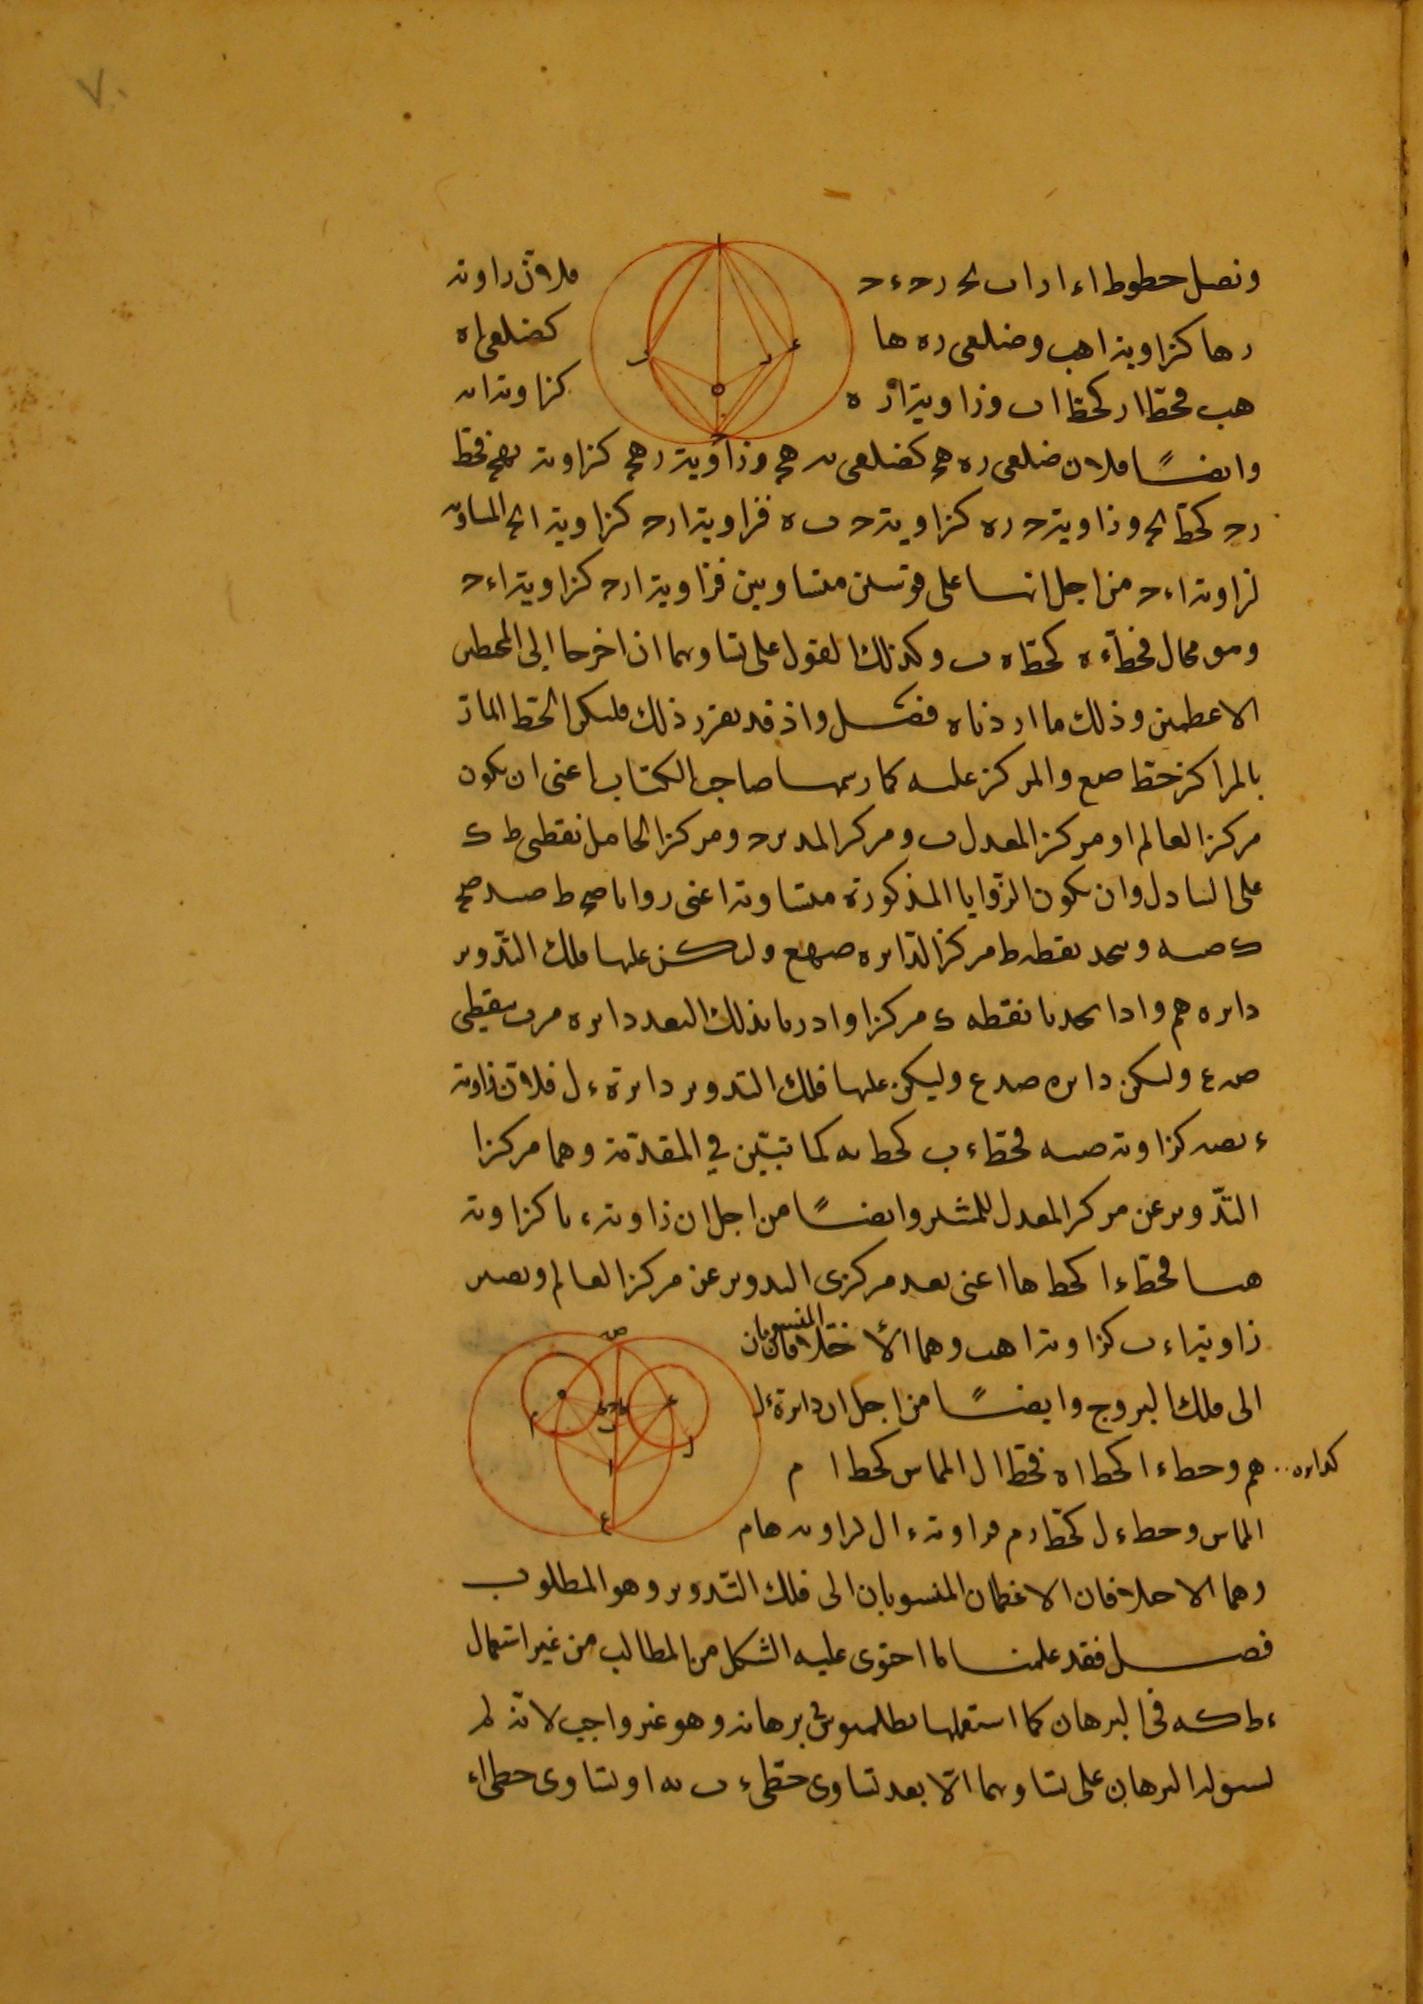 ٧٠
ونصل خطوط اء ار اب بح رح ءح فلان زاوية
ره ا كزاوية اهب وضلعى ره ها كضلعى اه
هب فخط ار كخط اب وزاوية ار ه كزاوية اب
وايضًا فلان ضلعى ره هح كضلعى به هح وزاوية رهح كزاوية بهح فخط
رح كخط بح وزاوية ح ره كزاوية ح ب ه فزاوية ارح كزاوية ابح المساوية
لزاوية اءح من اجل انهما على قوسين متساويين فزاوية ارح كزاوية اءح
وهو محال فخط ءه كخط ه ب وكذلك القول على تساويهما ان اخرجا الى المحيطين
الاعظمين وذلك ما اردناه فصل واذ قد تقرر ذلك فليكن الخط المار
بالمراكز خط صع والمركز عليه كما رسمها صاحب الكتاب اعنى ان يكون
مركز العالم ا ومركز المعدل ب ومركز المدير ح ومركز الحامل نقطى ط ك
على التبادل وان يكون الزوايا المذكورة متساوية اعنى زوايا صح ط صبد صح
ك صبه ونجعل نقطة ط مركز الدائرة صهع وليكن عليها فلك التدوير
دائرة هم واذا جعلنا نقطة ك مركزا وادرنا بذلك البعد دائرة مرت بنقطتى
ص ع ولتكن دائرة صءع وليكن عليها فلك التدوير دائرة ءل فلان زاوية
ء بص كزاوية صبه فخط ءب كخط به كما تبين في المقدمة وهما مركزا
التدوير عن مركز المعدل للمسير وايضًا من اجل ان زاوية ءبا كزاوية
هبا فخط ءا كخط ها اعنى بعد مركزى التدوير عن مركز العالم وتصير
زاوية اءب كزاوية اهب وهما الاختلافان المنسوبان
الى فلك البروج وايضًا من اجل ان دائرة ءل
كدائرة
هم وخط ءا كخط اه فخط ال المماس كخط ام
المماس وخط ءل كخط هم فزاوية ءال كزاوية هام
وهما الاختلافان الاعظمان المنسوبان الى فلك التدوير وهو المطلوب
فصل فقد علمنا ما احتوى عليه الشكل من المطالب من غير استعمال
ءط كه فى البرهان كما استعملها بطلميوس في برهانه وهو غير واجب لانه لم
البرهان على تساويهما الا بعد تساوى خطى ءب به او تساوى خطى اء